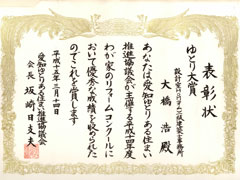 表彰状
ゆとり大賞
大橋 浩 殿
あなたは愛知ゆとりある住まい
推進協議会が主催する平成十四年度
わが家のリフォームコンクールに
おいて優秀な成績を収められた
のでこれを賞します
平成十五年三月一四日
愛知ゆとりある住まい推進協議会
会長 坂崎日支夫